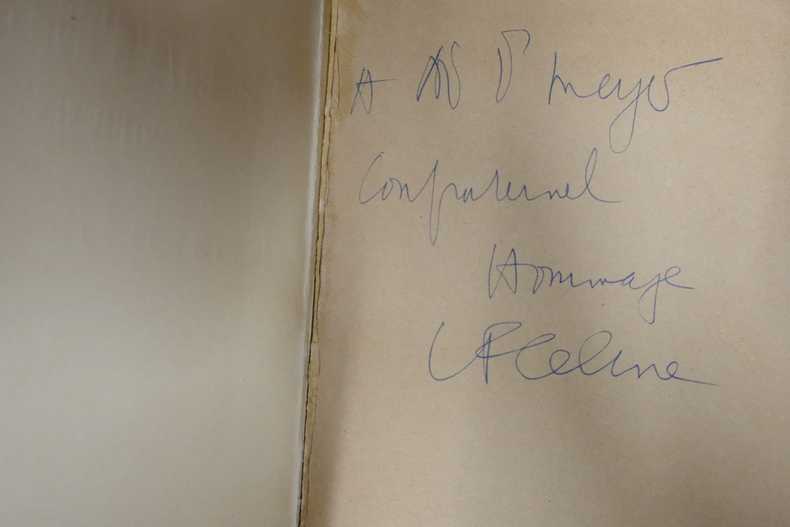 A Meyer
Confraternel
Hommage
LF Celine